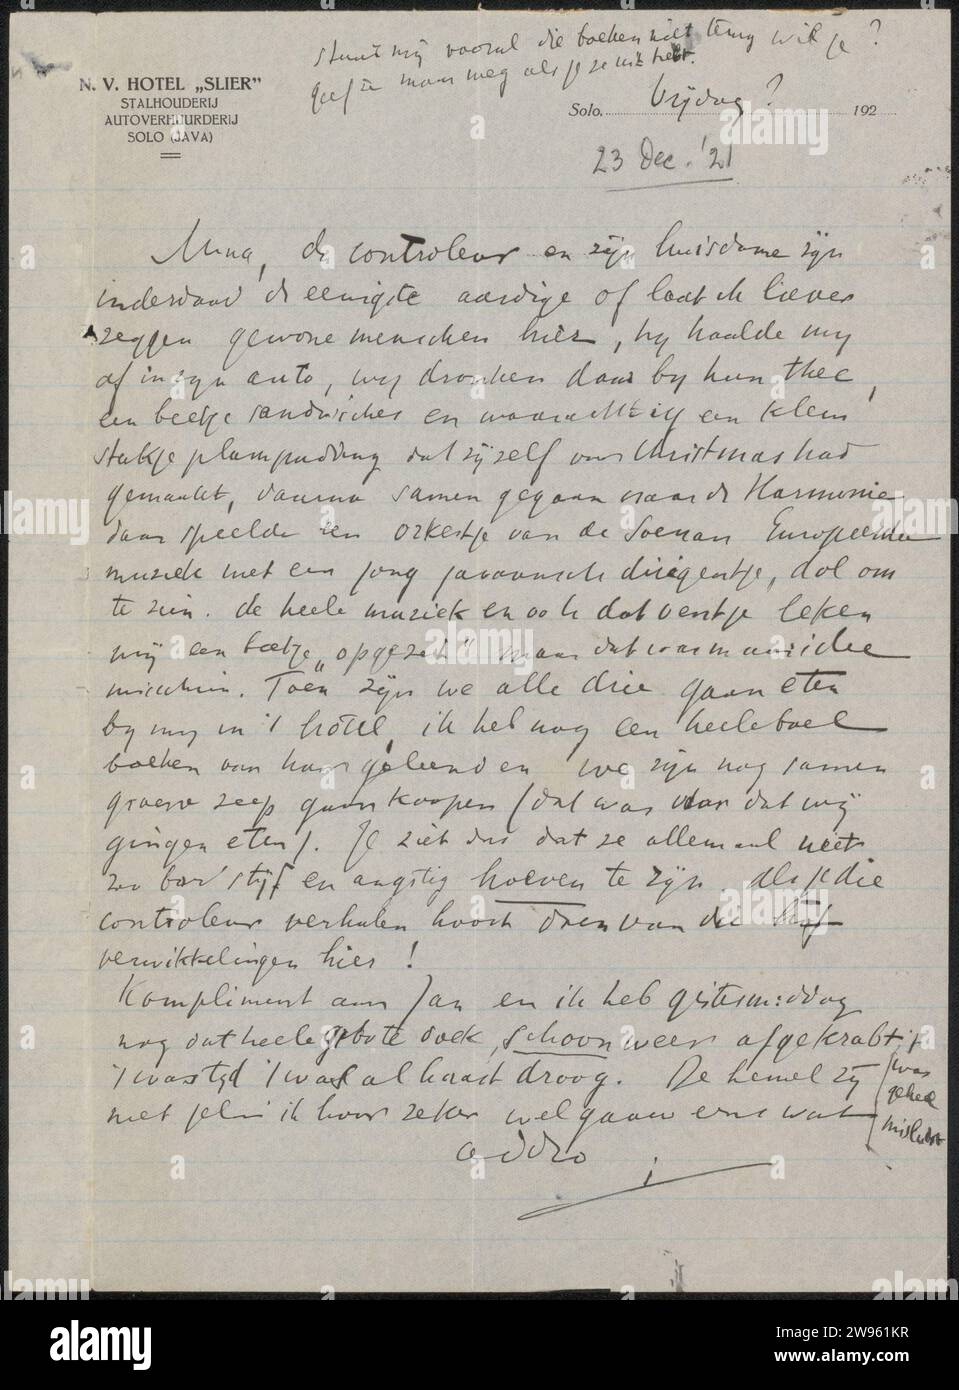 stuur mij vooral die boeken niet terug wil je?
geef ze maar weg als je ze uit hebt.
N. V. HOTEL „SLIER”
STALHOUDERIJ
AUTOVERHUURDERIJ
SOLO (JAVA)
Solo, Vrijdag? 192
23 Dec. '21
de controleur en zijn huisdame zijn
inderdaad de eenigste aardige of laat ik liever
zeggen gewone menschen hier, hij haalde my
af in zijn auto, wij dronken daar by hun thee,
een beetje sandwiches en waarachtig een klein
stukje plumpudding dat zij zelf voor Christmas had
gemaakt, daarna samen gegaan naar de Harmonie
daar speelde een orkestje van de Soenan Europeesche
muziek met een jong javaansch dirigentje, dol om
te zien. de heele muziek en ook dat ventje leken
mij een beetje „opgezet” maar dat was
misschien. Toen zijn we alle drie gaan eten
by my in 't hôtel, ik heb nog een heeleboel
boeken van haar geleend en we zijn nog samen
groene zeep gaan koopen (dat was voor dat wij
gingen eten). Je ziet dus dat ze allemaal niet
zoo stijf en angstig hoeven te zijn. Als je die
controleur verhalen hoort doen van die hof
verwikkelingen hier!
Kompliment aan Jan en ik heb gistermiddag
nog dat heele groote doek schoon weer afgekrabt,
't was tijd 't was al haast droog. De hemel zij
met je en ik hoor zeker wel gauw eens wat
addio
was
geheel
mislukt
alamy
Image ID: 2W961KR
www.alamy.com